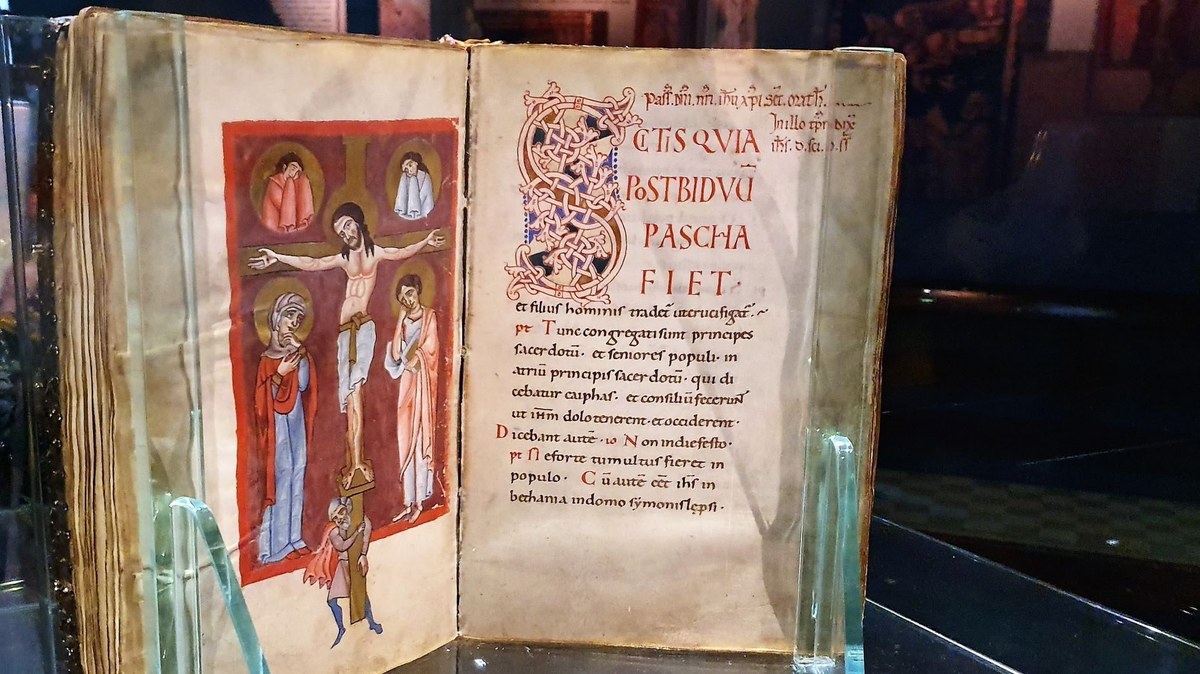 Pass̄. Dn̄i. nr̄i. ih̄u xp̄i. sec̄. math̄.
In illo tp̄r. dix̄
ih̄s. d. sci. s. ss̄
SCTIS QVIA
POST BIDVŪ
PASCHA
FIET.
et filius hominis tradet̄ ut crucifigat̄.
pt Tunc congregati sunt principes
sacerdotū. et seniores populi. in
atriū principis sacerdotū. qui di
cebatur caiphas. et consiliū fecerunt
ut ih̄m dolo tenerent. et occiderent.
Dicebant autē. io Non in die festo.
pt Ne forte tumultus fieret in
populo. Cū autē eēt ih̄s in
bethania in domo symonis lęprsi.